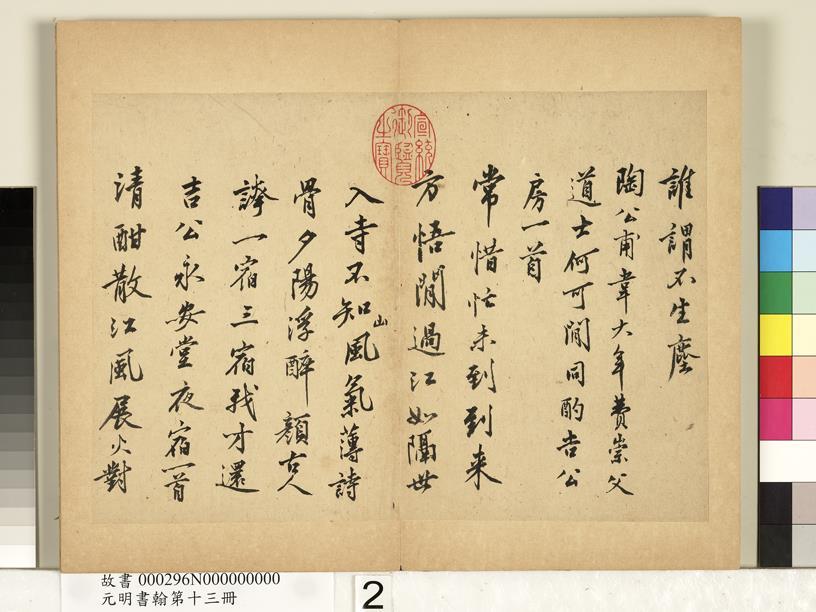 宣統御覽之寶
誰謂不生塵
陶公甫韋大年費崇父
道士何可閒同酌吉公
房一首
常惜忙未到到来
方悟閒過江如隔世
入寺不知山風氣薄詩
骨夕陽浮醉顏古人
一宿三宿我才還
吉公永安堂夜宿一首
清酣散江風展火對
故書 000296N000000000
元明書翰第十三冊
2